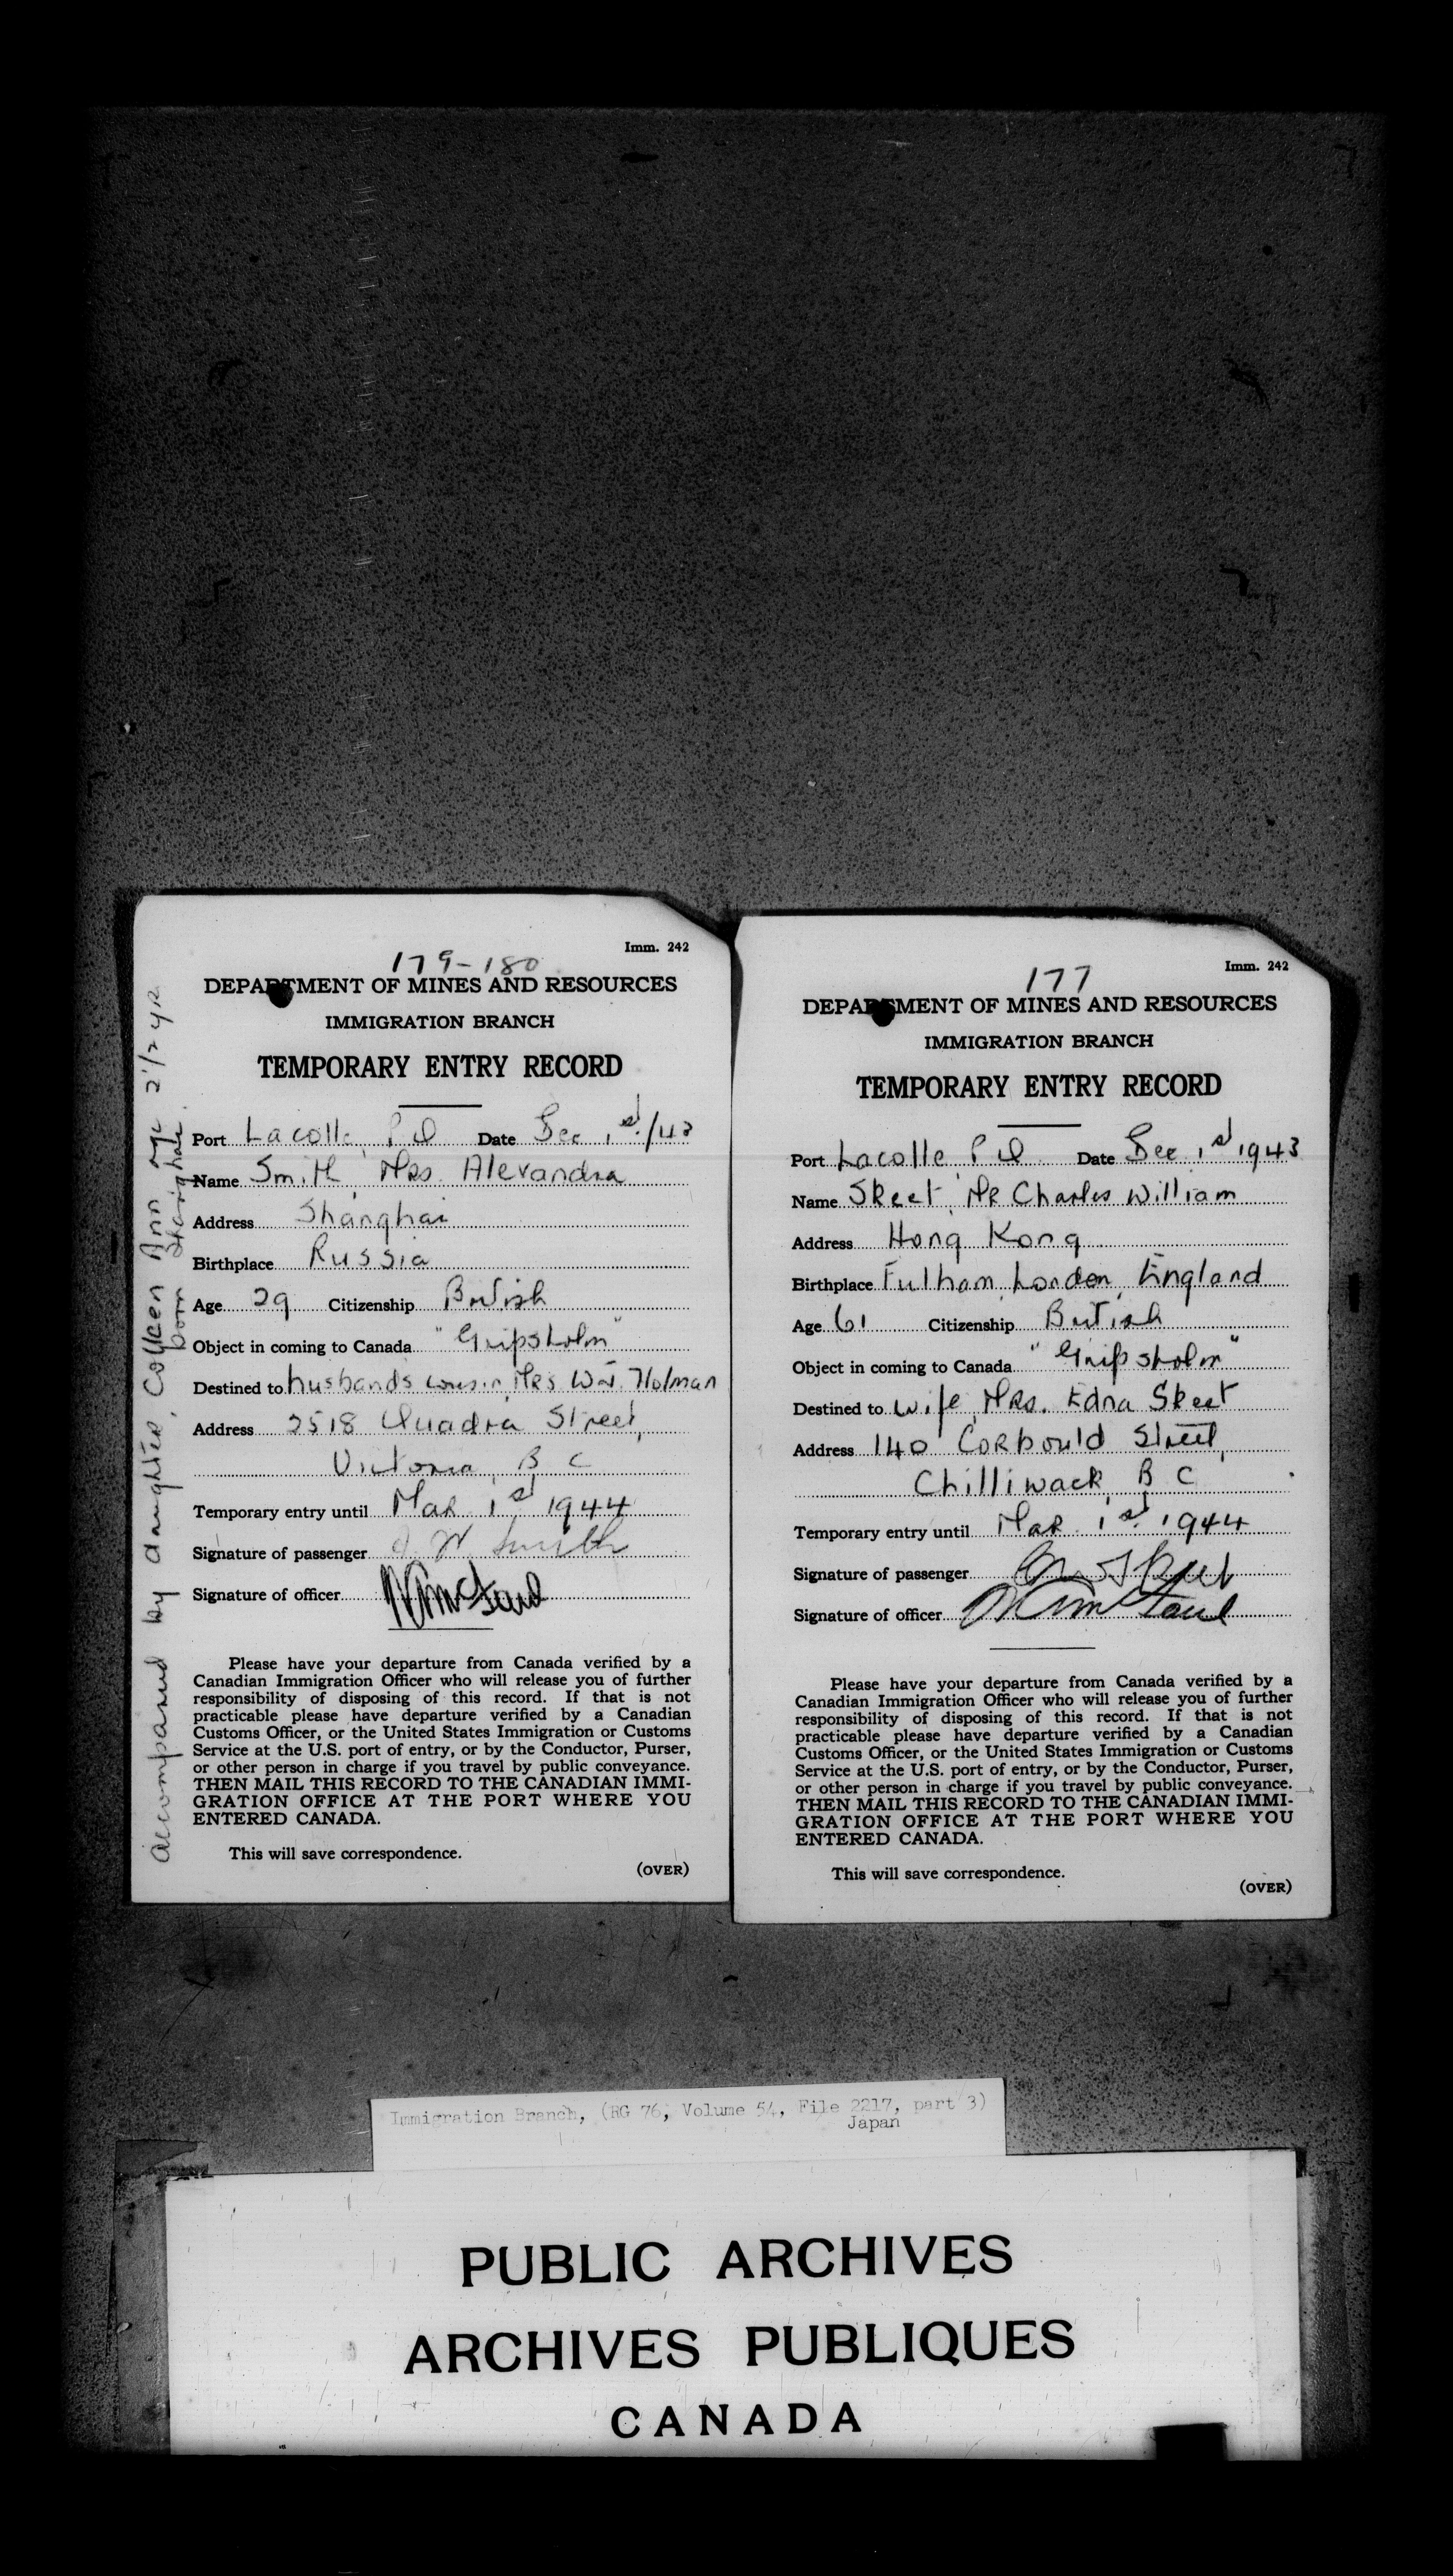 Imm. 242
179-180
DEPARTMENT OF MINES AND RESOURCES
IMMIGRATION BRANCH
TEMPORARY ENTRY RECORD
Port Lacolle, P Q Date Dec 1st/43
Name Smith, Mrs. Alexandra
Address Shanghai
Birthplace Russia
Age 29 Citizenship British
Object in coming to Canada "Gripsholm"
Destined to husbands cousin, Mrs W.J. Holman
Address 2518 Quadra Street,
Victoria, B C
Temporary entry until Mar 1st 1944
Signature of passenger Smith
Signature of officer
Please have your departure from Canada verified by a
Canadian Immigration Officer who will release you of further
responsibility of disposing of this record. If that is not
practicable please have departure verified by a Canadian
Customs Officer, or the United States Immigration or Customs
Service at the U.S. port of entry, or by the Conductor, Purser,
or other person in charge if you travel by public conveyance.
THEN MAIL THIS RECORD TO THE CANADIAN IMMI-
GRATION OFFICE AT THE PORT WHERE YOU
ENTERED CANADA.
This will save correspondence.
(OVER)
accompanied by daughter, Colleen Ann age 2 1/2 yr
born Shanghai
Imm. 242
177
DEPARTMENT OF MINES AND RESOURCES
IMMIGRATION BRANCH
TEMPORARY ENTRY RECORD
Port Lacolle, P Q Date Dec 1st 1943
Name Skeet, Mr Charles William
Address Hong Kong
Birthplace Fulham, London, England
Age 61 Citizenship British
Object in coming to Canada "Gripsholm"
Destined to wife, Mrs. Edna Skeet
Address 140 Corbould Street,
Chilliwack, B C
Temporary entry until Mar 1st 1944
Signature of passenger Skeet
Signature of officer
Please have your departure from Canada verified by a
Canadian Immigration Officer who will release you of further
responsibility of disposing of this record. If that is not
practicable please have departure verified by a Canadian
Customs Officer, or the United States Immigration or Customs
Service at the U.S. port of entry, or by the Conductor, Purser,
or other person in charge if you travel by public conveyance.
THEN MAIL THIS RECORD TO THE CANADIAN IMMI-
GRATION OFFICE AT THE PORT WHERE YOU
ENTERED CANADA.
This will save correspondence.
(OVER)
Immigration Branch, (RG 76, Volume 54, File 2217, part 3)
Japan
PUBLIC ARCHIVES
ARCHIVES PUBLIQUES
CANADA